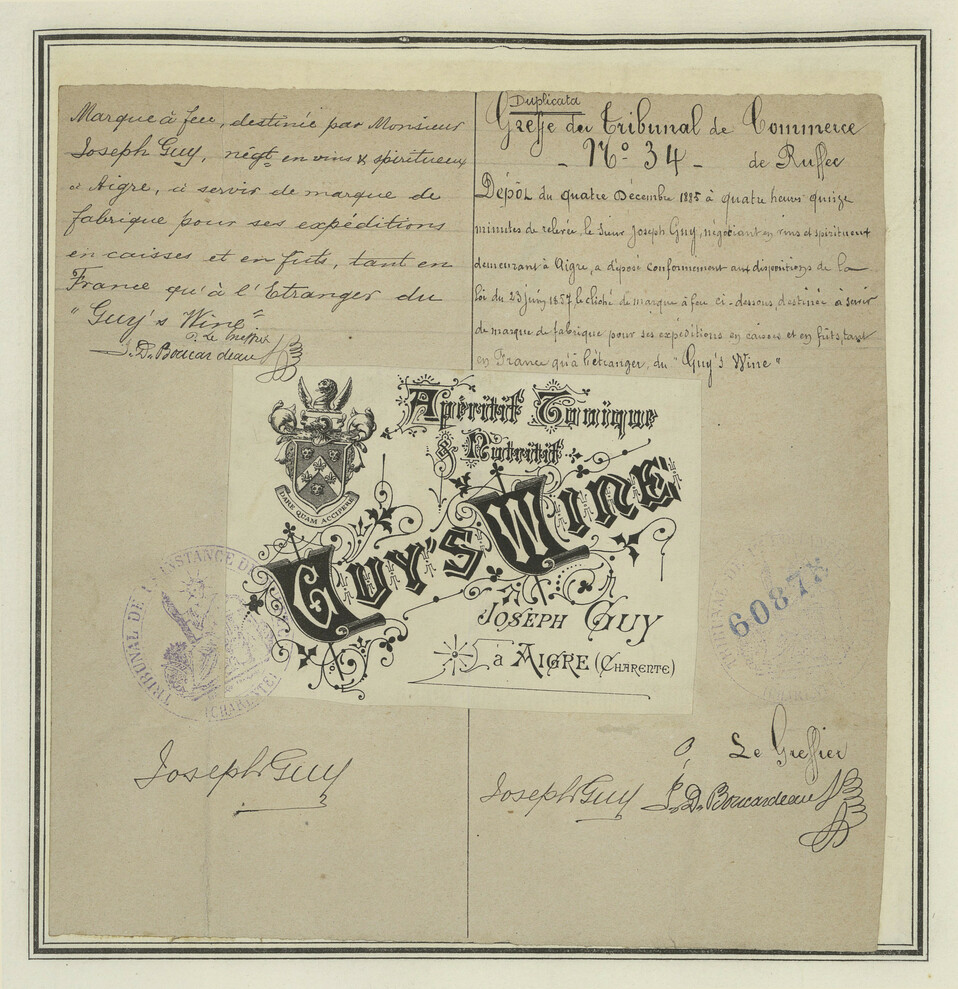 Marque à feu, destinée par Monsieur
Joseph Guy, négt en vins & spiritueux
à Aigre, à servir de marque de
fabrique pour ses expéditions
en caisses et en futs, tant en
France qu'à l'Etranger du
"Guy's Wine"
P. Le Greffier
J. D. Boucardeau
Duplicata
Greffe du Tribunal de Commerce
- No 34 - de Ruffec
Dépôt du quatre Décembre 1895 à quatre heures quinze
minutes de relevée, le Sieur Joseph Guy, négociant en vins et spiritueux
demeurant à Aigre, a déposé conformément aux dispositions de la
loi du 23 juin 1857, le cliché de marque à feu ci-dessous, destinée à servir
de marque de fabrique pour ses expéditions en caisses et en futs, tant
en France qu'à l'étranger, du "Guy's Wine"
Apéritif Tonique
& Nutritif
DARE QUAM ACCIPERE
GUY'S WINE
JOSEPH GUY
à AIGRE (CHARENTE)
TRIBUNAL DE INSTANCE DE
(CHARENTE)
TRIBUNAL DE
6087
Joseph Guy
Le Greffier
Joseph Guy
J. D. Boucardeau